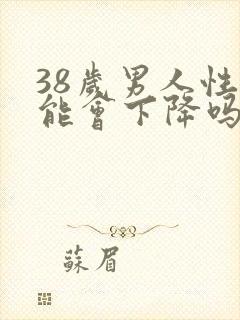 38歲男人性
能會下降吗
蘇眉